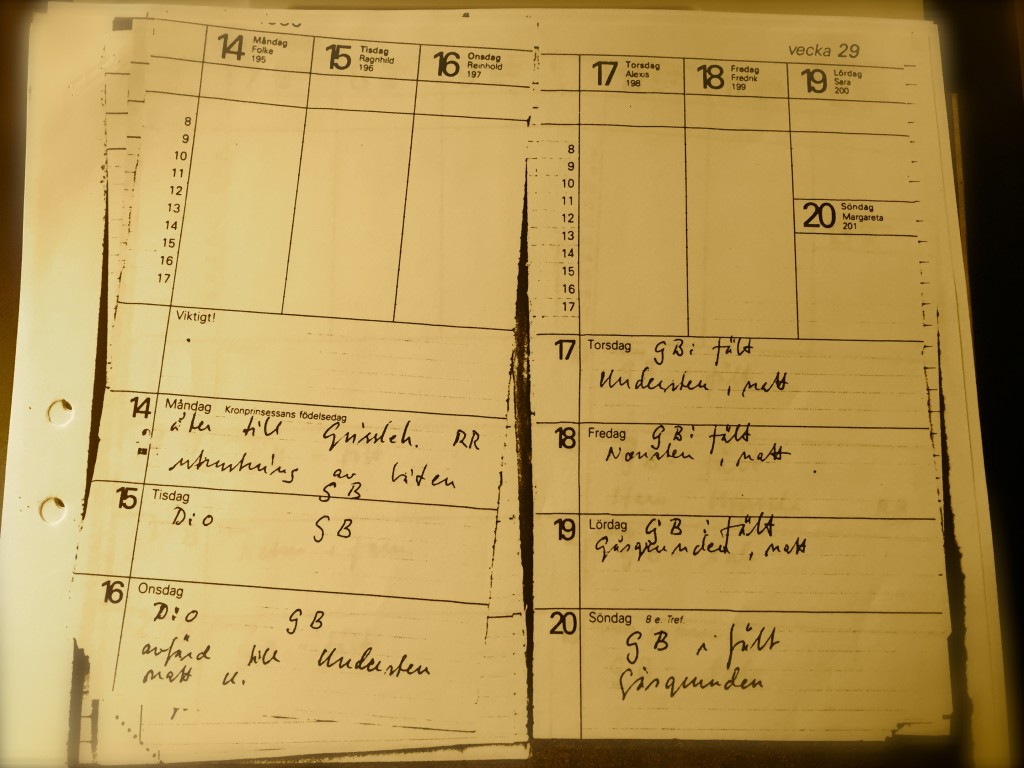 14 Måndag
Folke
195
15 Tisdag
Ragnhild
196
16 Onsdag
Reinhold
197
8
9
10
11
12
13
14
15
16
17
Viktigt!
14 Måndag Kronprinsessans födelsedag
åter till Grissleh. RR
utrustning av båten
GB
15 Tisdag
D:o GB
16 Onsdag
D:o GB
avfärd till Understen
natt
vecka 29
17 Torsdag
Alexis
198
18 Fredag
Fredrik
199
19 Lördag
Sara
200
8
9
10
11
12
13
14
15
16
17
20 Söndag
Margareta
201
17 Torsdag GB i fält
Understen, natt
18 Fredag GB i fält
, natt
19 Lördag GB i fält
Gåsgrunden, natt
20 Söndag 8 e. Tref.
GB i fält
Gåsgrunden